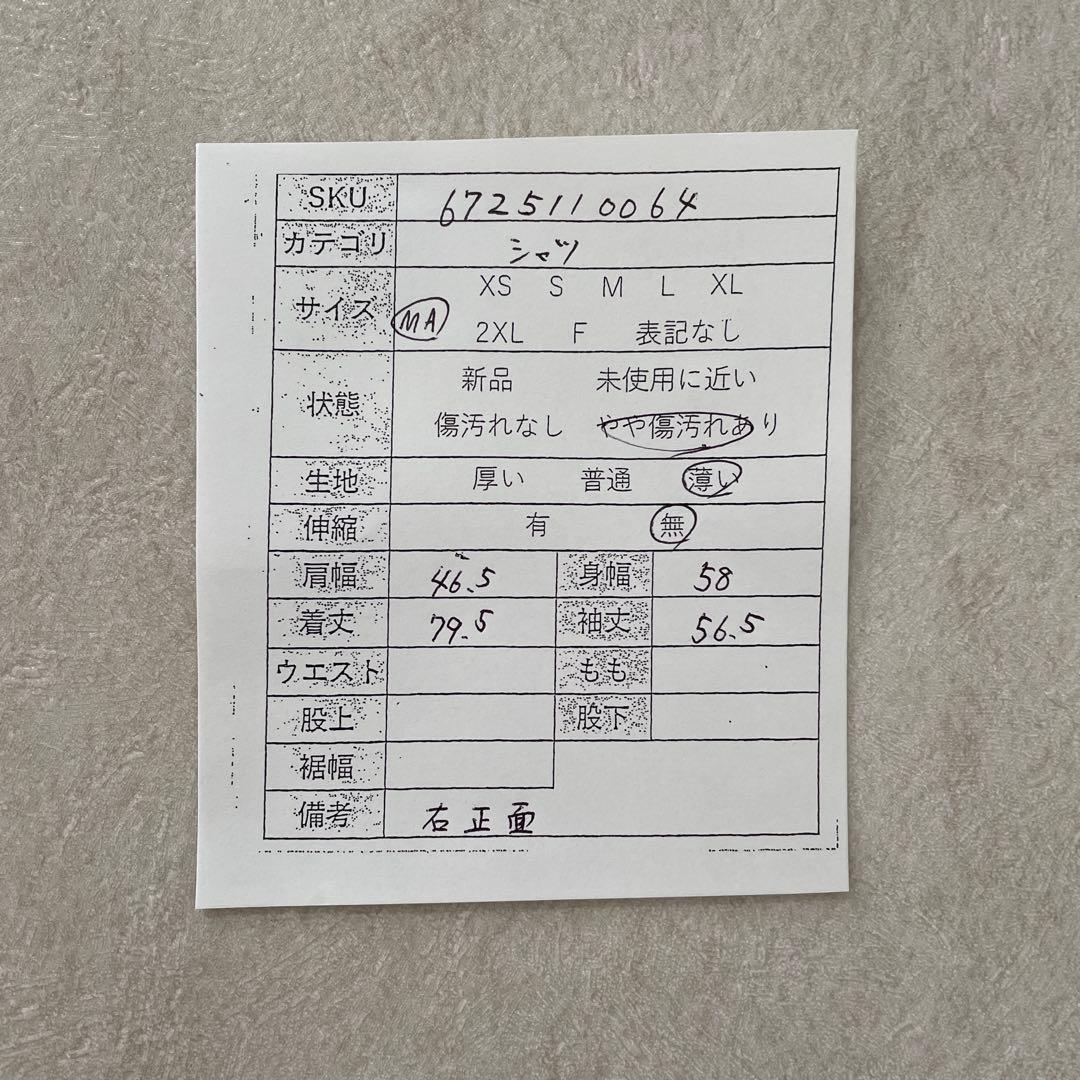 SKU 6725110064
カテゴリ シャツ
サイズ XS S M L XL
MA 2XL F 表記なし
状態 新品 未使用に近い
傷汚れなし やや傷汚れあり
生地 厚い 普通 薄い
伸縮 有 無
肩幅 46.5 身幅 58
着丈 79.5 袖丈 56.5
ウエスト もも
股上 股下
裾幅
備考 右正面